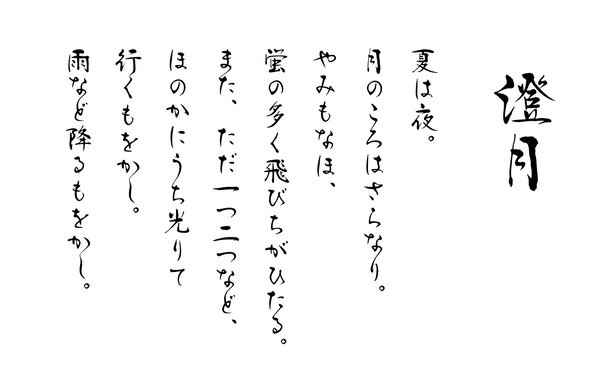 澄月
夏は夜。
月のころはさらなり。
やみもなほ、
蛍の多く飛びちがひたる。
また、ただ一つ二つなど、
ほのかにうち光りて
行くもをかし。
雨など降るもをかし。